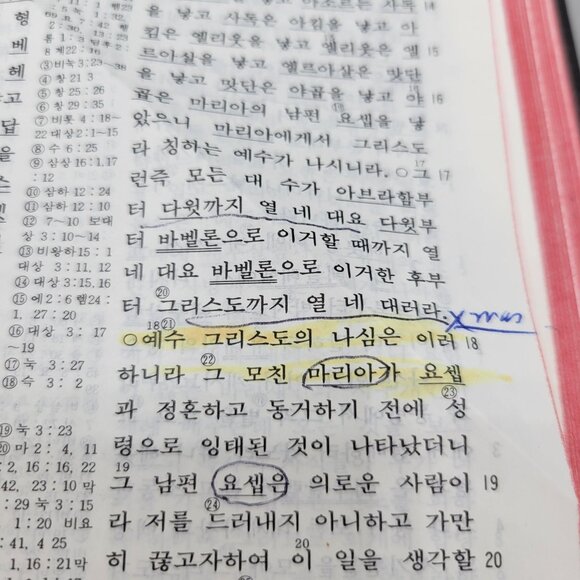 형
베
헤
답
을
2:30, 13
롬 1:3
계 22:16
③비눅 3:23~38
④창 21 3
⑤창 25:26
⑥창 29:35
⑦비룻 4:18~
22 대상 2:1~15
⑧수 6:25
⑨삼상 16:1.17
:12
⑩삼하 12:24
⑪삼하 12:10
⑫ 7~10 보대
상 3:10~14
⑬비왕하 15:1
대상 3:11, 12
⑭대상 3:15.16
⑮에 2:6 렘 24:
1. 27:20
⑯대상 3:17
~19
⑰눅 3:27
⑱슥 3:2
⑲눅 3:23
⑳마 2:4, 11
:2, 16:16, 22
42, 23:10 막
:29 눅 3:15
1:20 비요
:41, 4 25
1, 16:21막
을 낳고 사독은 아킴을 낳고 아 14
킴은 엘리웃을 낳고 엘리웃은 엘 15
르아살을 낳고 엘르아살은 맛단
을 낳고 맛단은 야곱을 낳고 야 16
곱은 마리아의 남편 요셉을 낳
았으니 마리아에게서 그리스도
라 칭하는 예수가 나시니라. ○그 17
런즉 모든 대 수가 아브라함부
터 다윗까지 열 네 대요 다윗부
터 바벨론으로 이거할 때까지 열
네 대요 바벨론으로 이거한 후부
터 그리스도까지 열 네 대러라.
○예수 그리스도의 나심은 이러 18
하니라 그 모친 마리아가 요셉
과 정혼하고 동거하기 전에 성
령으로 잉태된 것이 나타났더니
그 남편 요셉은 의로운 사람이 19
라 저를 드러내지 아니하고 가만
히 끊고자하여 이 일을 생각할 20